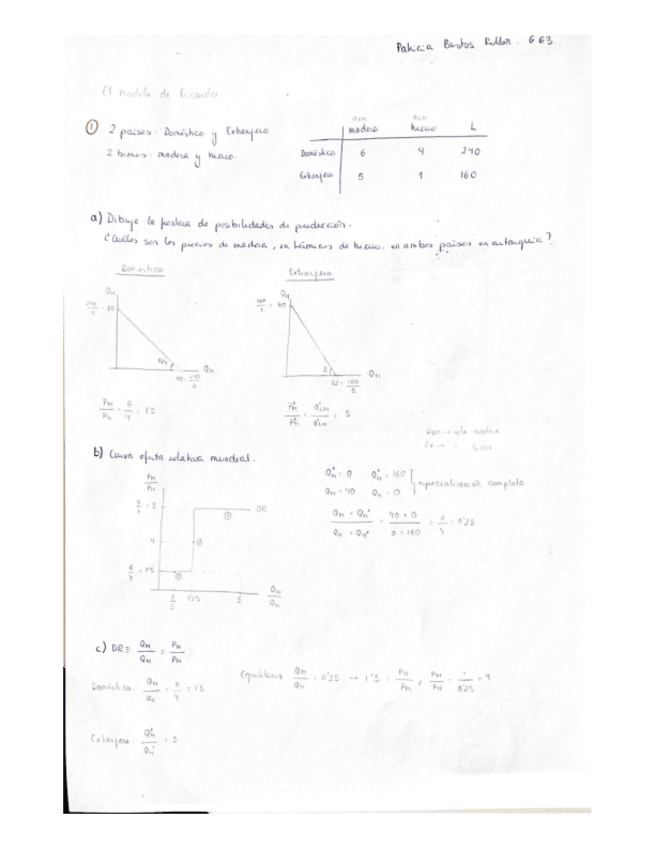 Patricia Bustos G 63
El modelo de Ricardo.
① 2 países: Doméstico y Extranjero
2 bienes: madera y heno.
aLM aLH
madera heno L
Doméstico 6 4 240
Extranjero 5 1 160
a) Dibuje la frontera de posibilidades de producción.
¿Cuáles son los precios de madera, en términos de heno, en ambos países en autarquía?
Doméstico Extranjero
QH
240/4 = 60
6/4
QM
40 = 240/6
PM/PH = 6/4 = 1'5
QH
160/1 = 160
5
QM
32 = 160/5
P*M/P*H = a*LM/a*LH = 5
b) Curva oferta relativa mundial.
PM/PH
5/1 = 5
4
6/4 = 1'5
OR
QM/QH
Q*M = 0 Q*H = 160
QM = 40 QH = 0
especialización completa
QM + Q*M / QH + Q*H = 40 + 0 / 0 + 160 = 1/4 = 0'25
c) DR ≡ QM/QH = PH/PM
Doméstico: QM/QH = 6/4 = 1'5
Equilibrio QM/QH = 0'25 → PM/PH = 1/0'25 = 4
Extranjero: Q*M/Q*H = 5